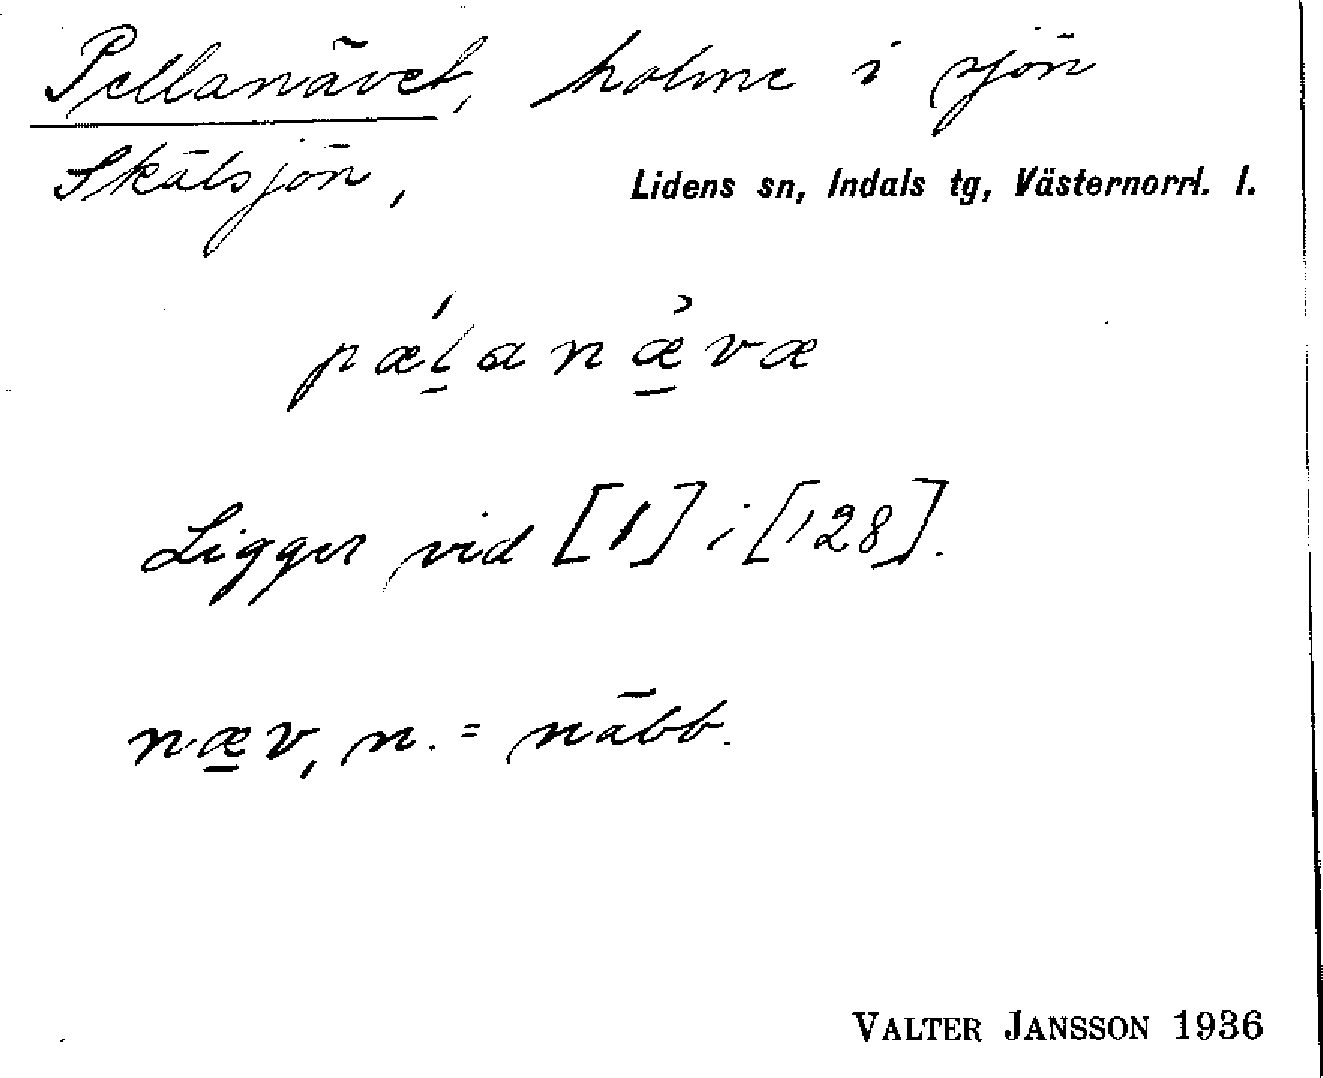 Pellanävet, holme i sjön
Skälsjön,
Lidens sn, Indals tg, Västernorrl. l.
pæ̀l̠anæ̠̀væ
Ligger vid [1] i [128].
næ̠v, n. = näbb.
VALTER JANSSON 1936